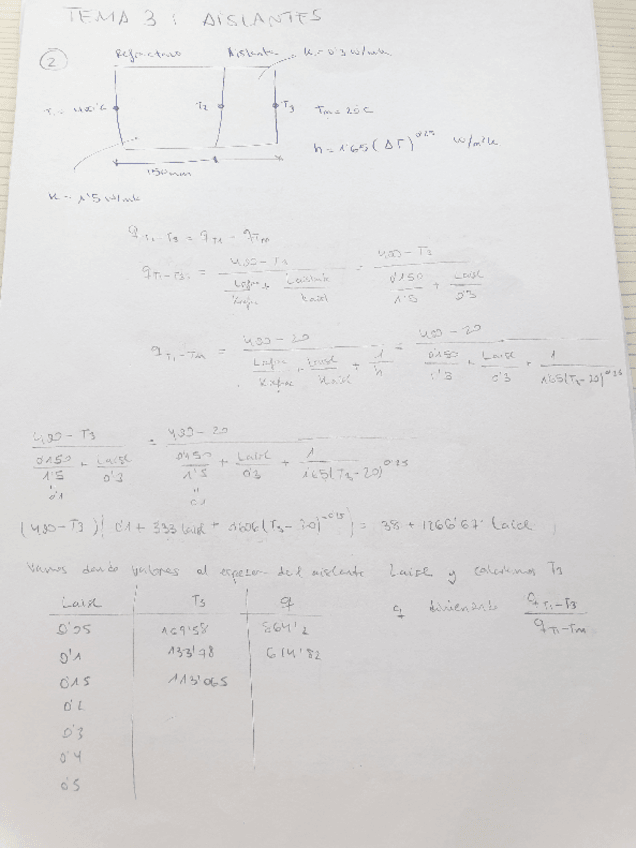 TEMA 3: AISLANTES
②
Refractario Aislante K = 0'3 W/mK
T1 = 400°C T2 T3 T∞ = 20°C
h = 1'65 (ΔT)^0'25 W/m²K
150mm
K = 1'5 W/mK
q T1-T3 = q T1 - q T∞
q T1-T3 = (400 - T3) / (Lrefrac/Krefrac + Laislante/Kaisl) = (400 - T3) / (0'150/1'5 + Laisl/0'3)
q T1-T∞ = (400 - 20) / (Lrefrac/Krefrac + Laisl/Kaisl + 1/h) = (400 - 20) / (0'150/0'3 + Laisl/0'3 + 1/1'65(T3-20)^0'25)
(400 - T3) / (0'150/1'5 + Laisl/0'3) = (400 - 20) / (0'150/1'5 + Laisl/0'3 + 1/1'65(T3-20)^0'25)
0'1 0'1
(400 - T3)(0'1 + 3'33 Laisl + 0'606 (T3 - 20)^-0'25) = 38 + 1266'67 · Laisl
Vamos dando valores al espesor del aislante Laisl y calculamos T3
Laisl T3 q q T1-T3 / q T1-T∞
0'05 169'58 864'2
0'1 133'78 614'82
0'15 113'065
0'2
0'3
0'4
0'5